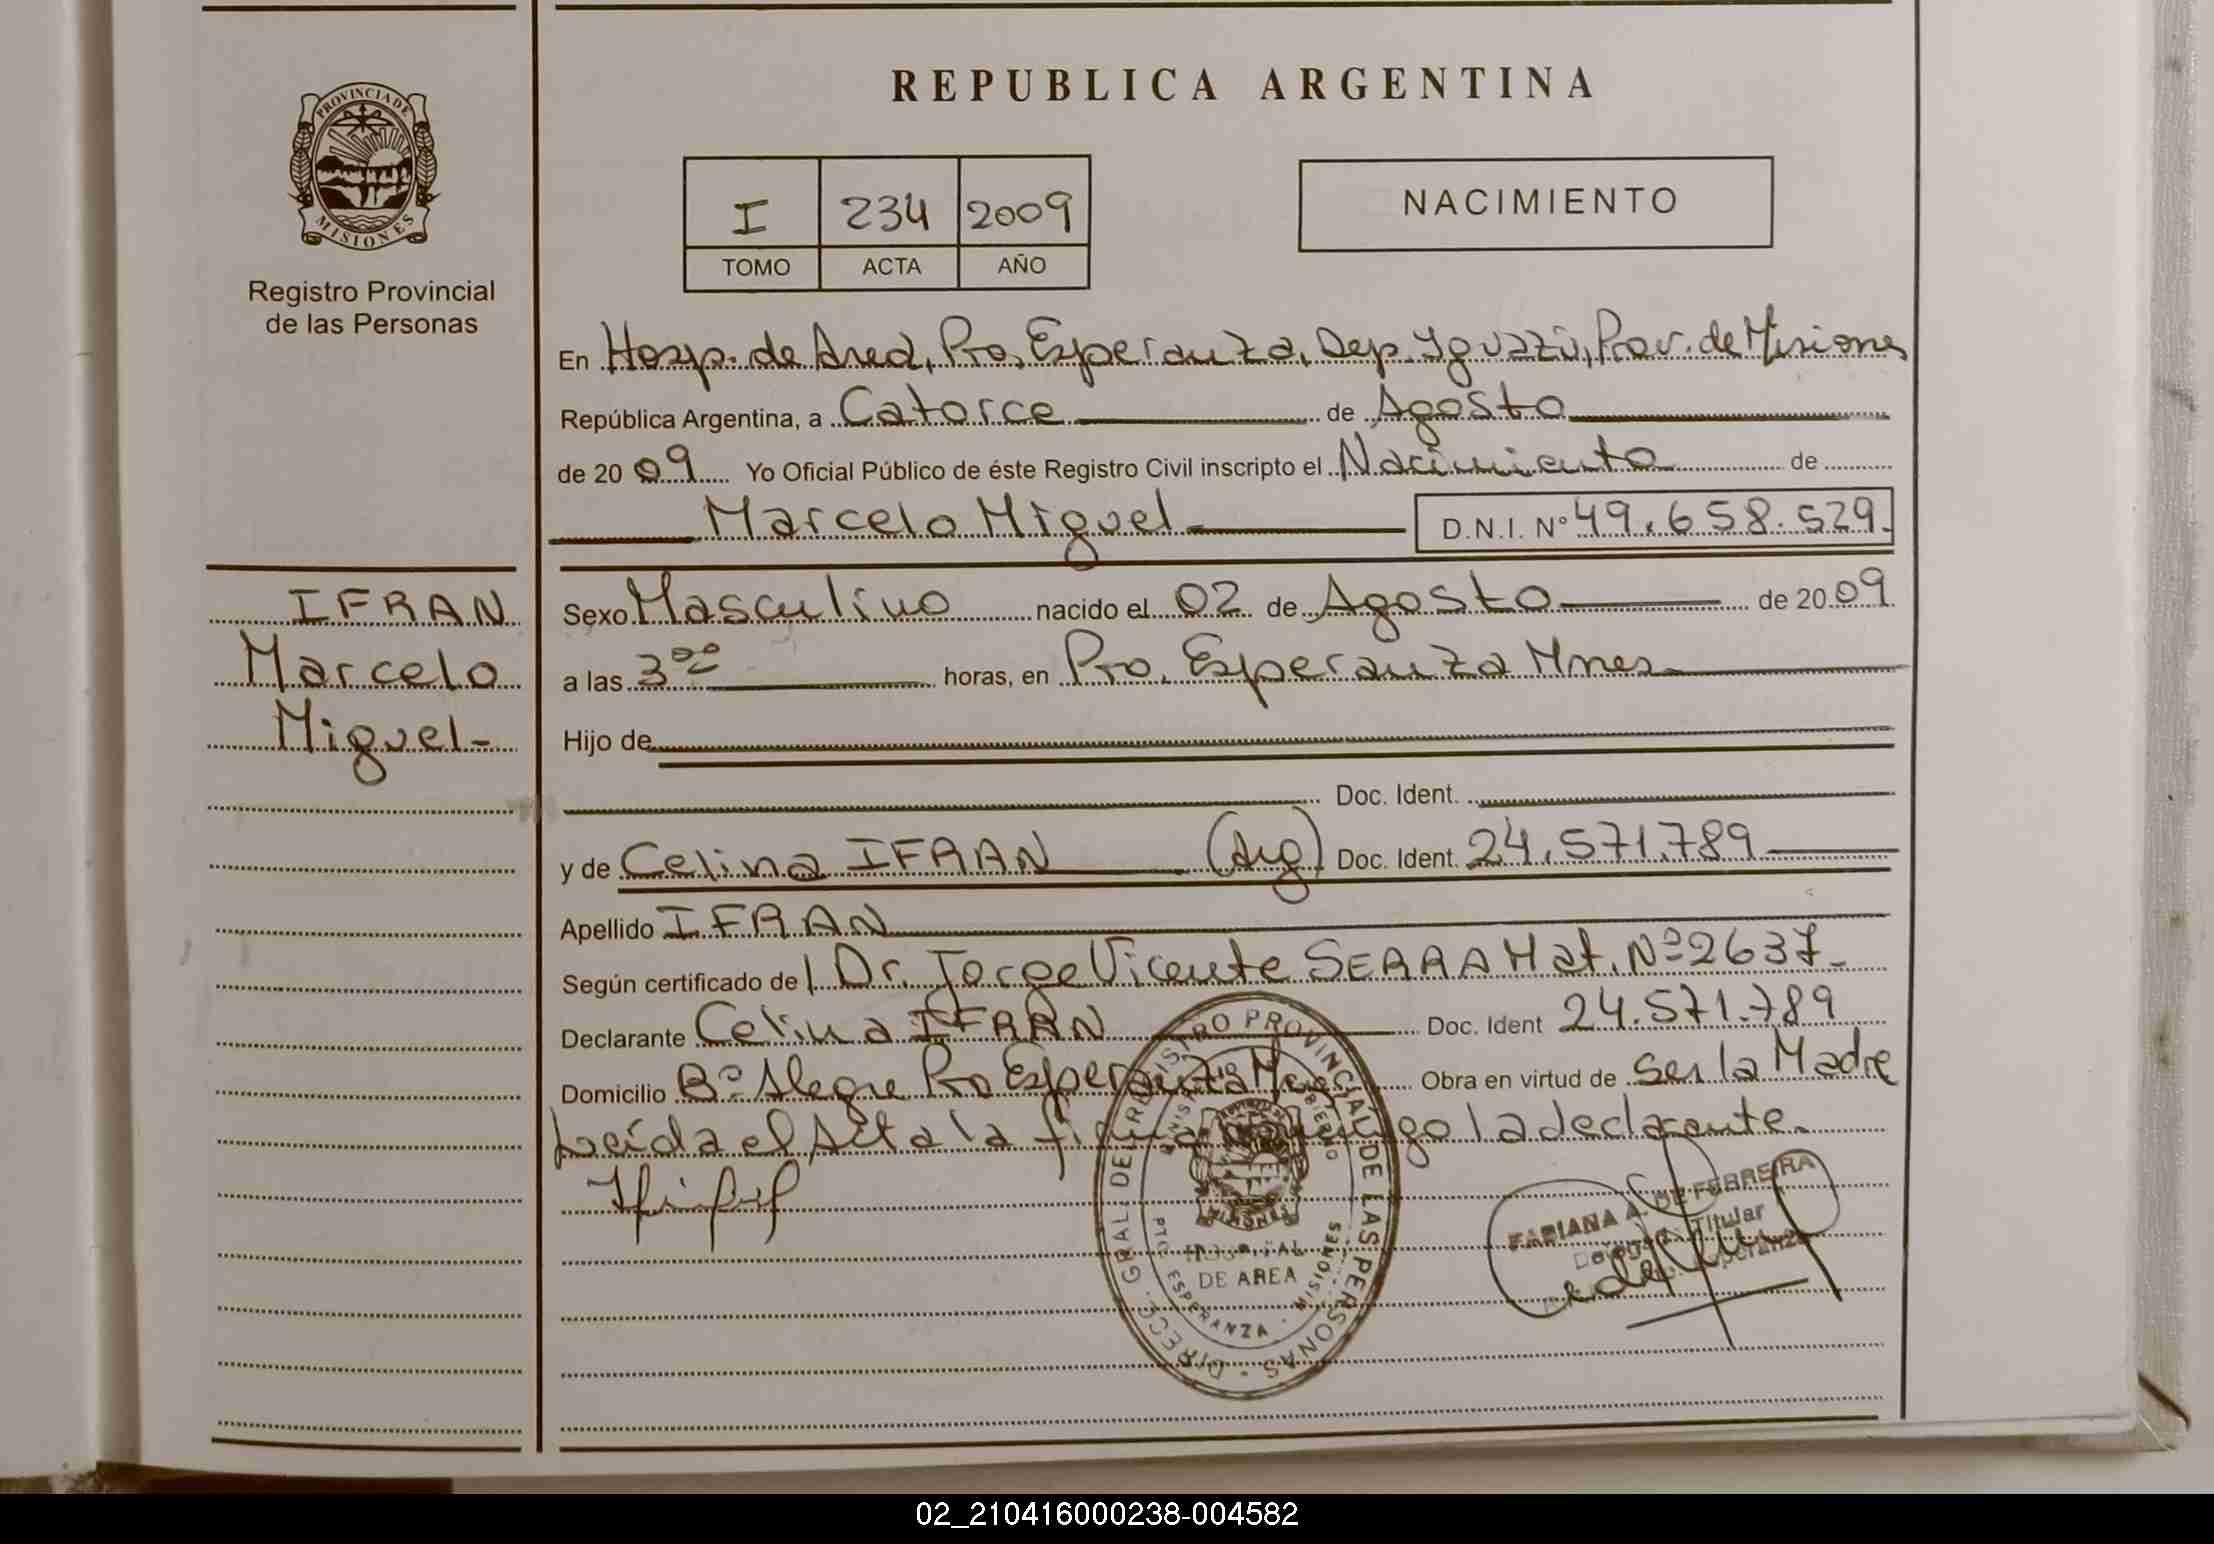 REPUBLICA ARGENTINA
PROVINCIA DE
MISIONES
Registro Provincial
de las Personas
I 234 2009
TOMO ACTA AÑO
NACIMIENTO
En Hosp. de Area, Pto. Esperanza, Dep. Yguazú, Prov. de Misiones
República Argentina, a Catorce de Agosto
de 2009 Yo Oficial Público de éste Registro Civil inscripto el Nacimiento de
Marcelo Miguel D.N.I. Nº 49.658.529.
IFRAN
Marcelo
Miguel-
Sexo Masculino nacido el 02 de Agosto de 2009
a las 3 00 horas, en Pto. Esperanza Mnes
Hijo de
Doc. Ident.
y de Celina IFRAN (Arg) Doc. Ident. 24.571.789
Apellido IFRAN
Según certificado del Dr. Jorge Vicente SERRA Mat. Nº 2637-
Declarante Celina IFRAN Doc. Ident 24.571.789
Domicilio Bº Alegre Pto Esperanza Mnes Obra en virtud de ser la Madre
Leída el Acta la firma conmigo la declarante.
DIRECC. GRAL. DEL REGISTRO PROVINCIAL DE LAS PERSONAS
MISIONES
HOSPITAL
DE AREA
PTO. ESPERANZA - MISIONES
FABIANA A. DE FERREIRA
Delegada Titular
02_210416000238-004582